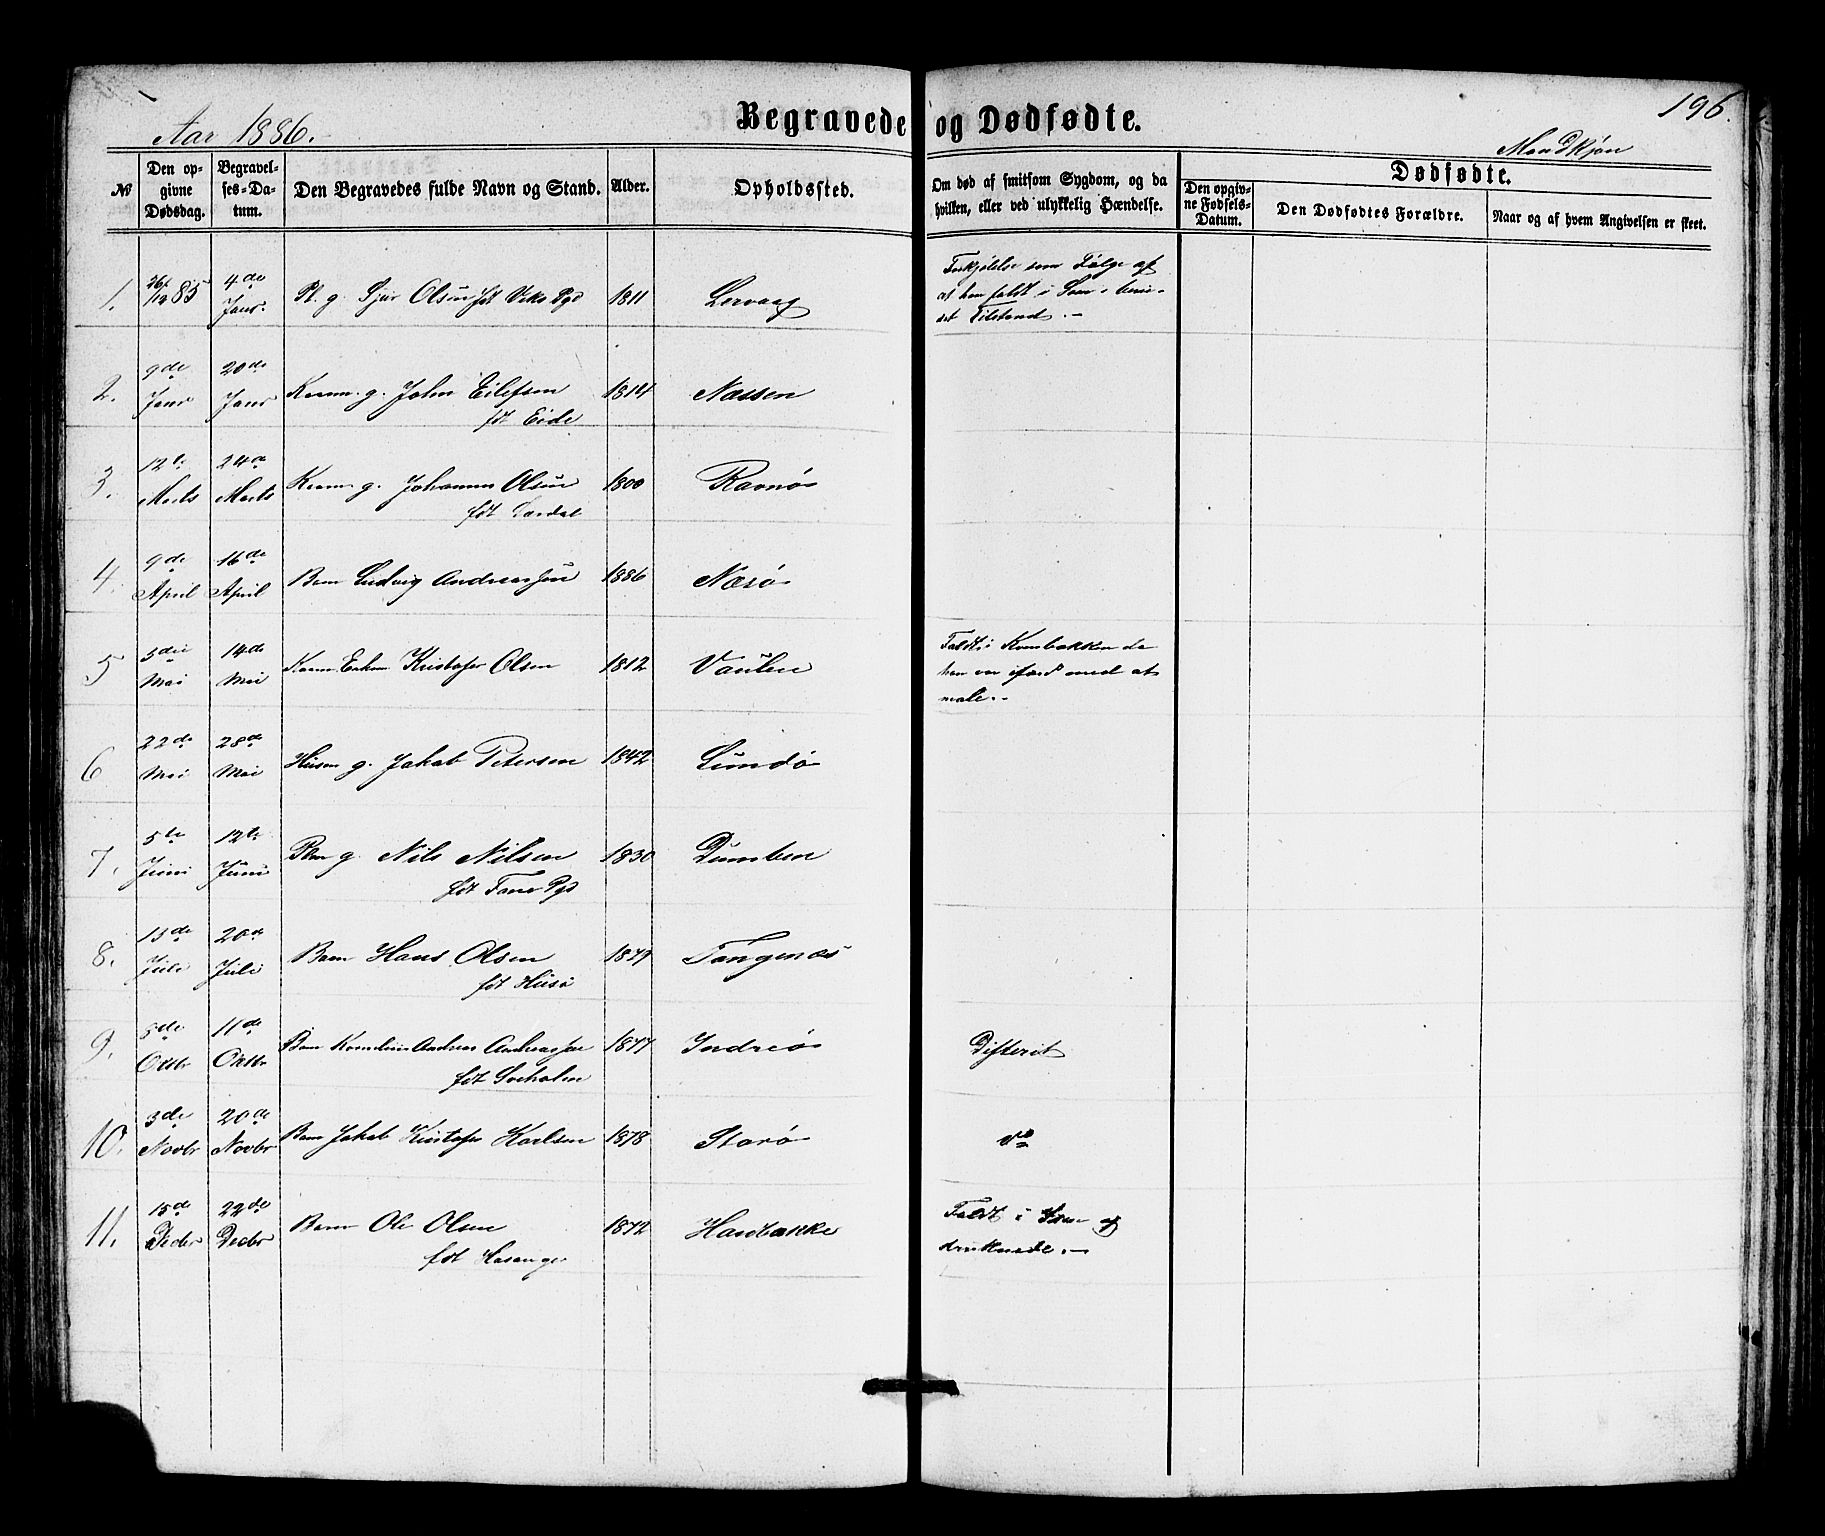 196.
Aar 1886.
Begravede og Dødfødte.
Mandkjøn
№
Den opgivne Dødsdag.
Begravelses-Datum.
Den Begravedes fulde Navn og Stand.
Alder.
Opholdssted.
Om død af smitsom Sygdom, og da hvilken, eller ved ulykkelig Hændelse.
Dødfødte.
Den opgivne Fødsels-Datum.
Den Dødfødtes Forældre.
Naar og af hvem Angivelsen er skeet.
1. 26/12 85 4de Janr. Pl. g. Sjur Olsen fdt Viks Pgd 1811 Lervaag
Forkjølelse som Følge af
at han faldt i Søen i beru-
set Tilstand.-
2. 9de Janr 20de Janr Kaarm. g. John Eilefsen 1814 Næssen
fdt Eide
3. 12te Marts 24de Marts Kaarm g. Johannes Olsen 1800 Ravnø
fdt
4. 9de April 16de April Barn Ludvig Andreassen 1886 Næsø
5 3die Mai 14de Mai Kaarm Enkem Kristofer Olsen 1812 Vaulen
Faldt i Kvernbakken da
han var ifærd med at
male.-
6 22de Mai 28de Mai Husm g. Jakob Petersen 1842 Lundø
7. 5te Juni 12te Juni Plm g. Nils Nilsen 1830 Dumben
fdt Fane Pgd
8. 13de Juli 20de Juli Barn Hans Olsen 1879 Tangenæs
fdt Husø
9. 5de Oktbr 11de Oktbr Barn Kornelius Andreas Andreassen 1877 Indreø Difterit
fdt Sveholm
10. 3de Novbr 20de Novbr Barn Jakob Kristofer Karlsen 1878 Storø do
11. 15de Decbr 22de Decbr Barn Ole Olsen 1872 Hardbakke
Faldt i Søen og
druknede.-
fdt